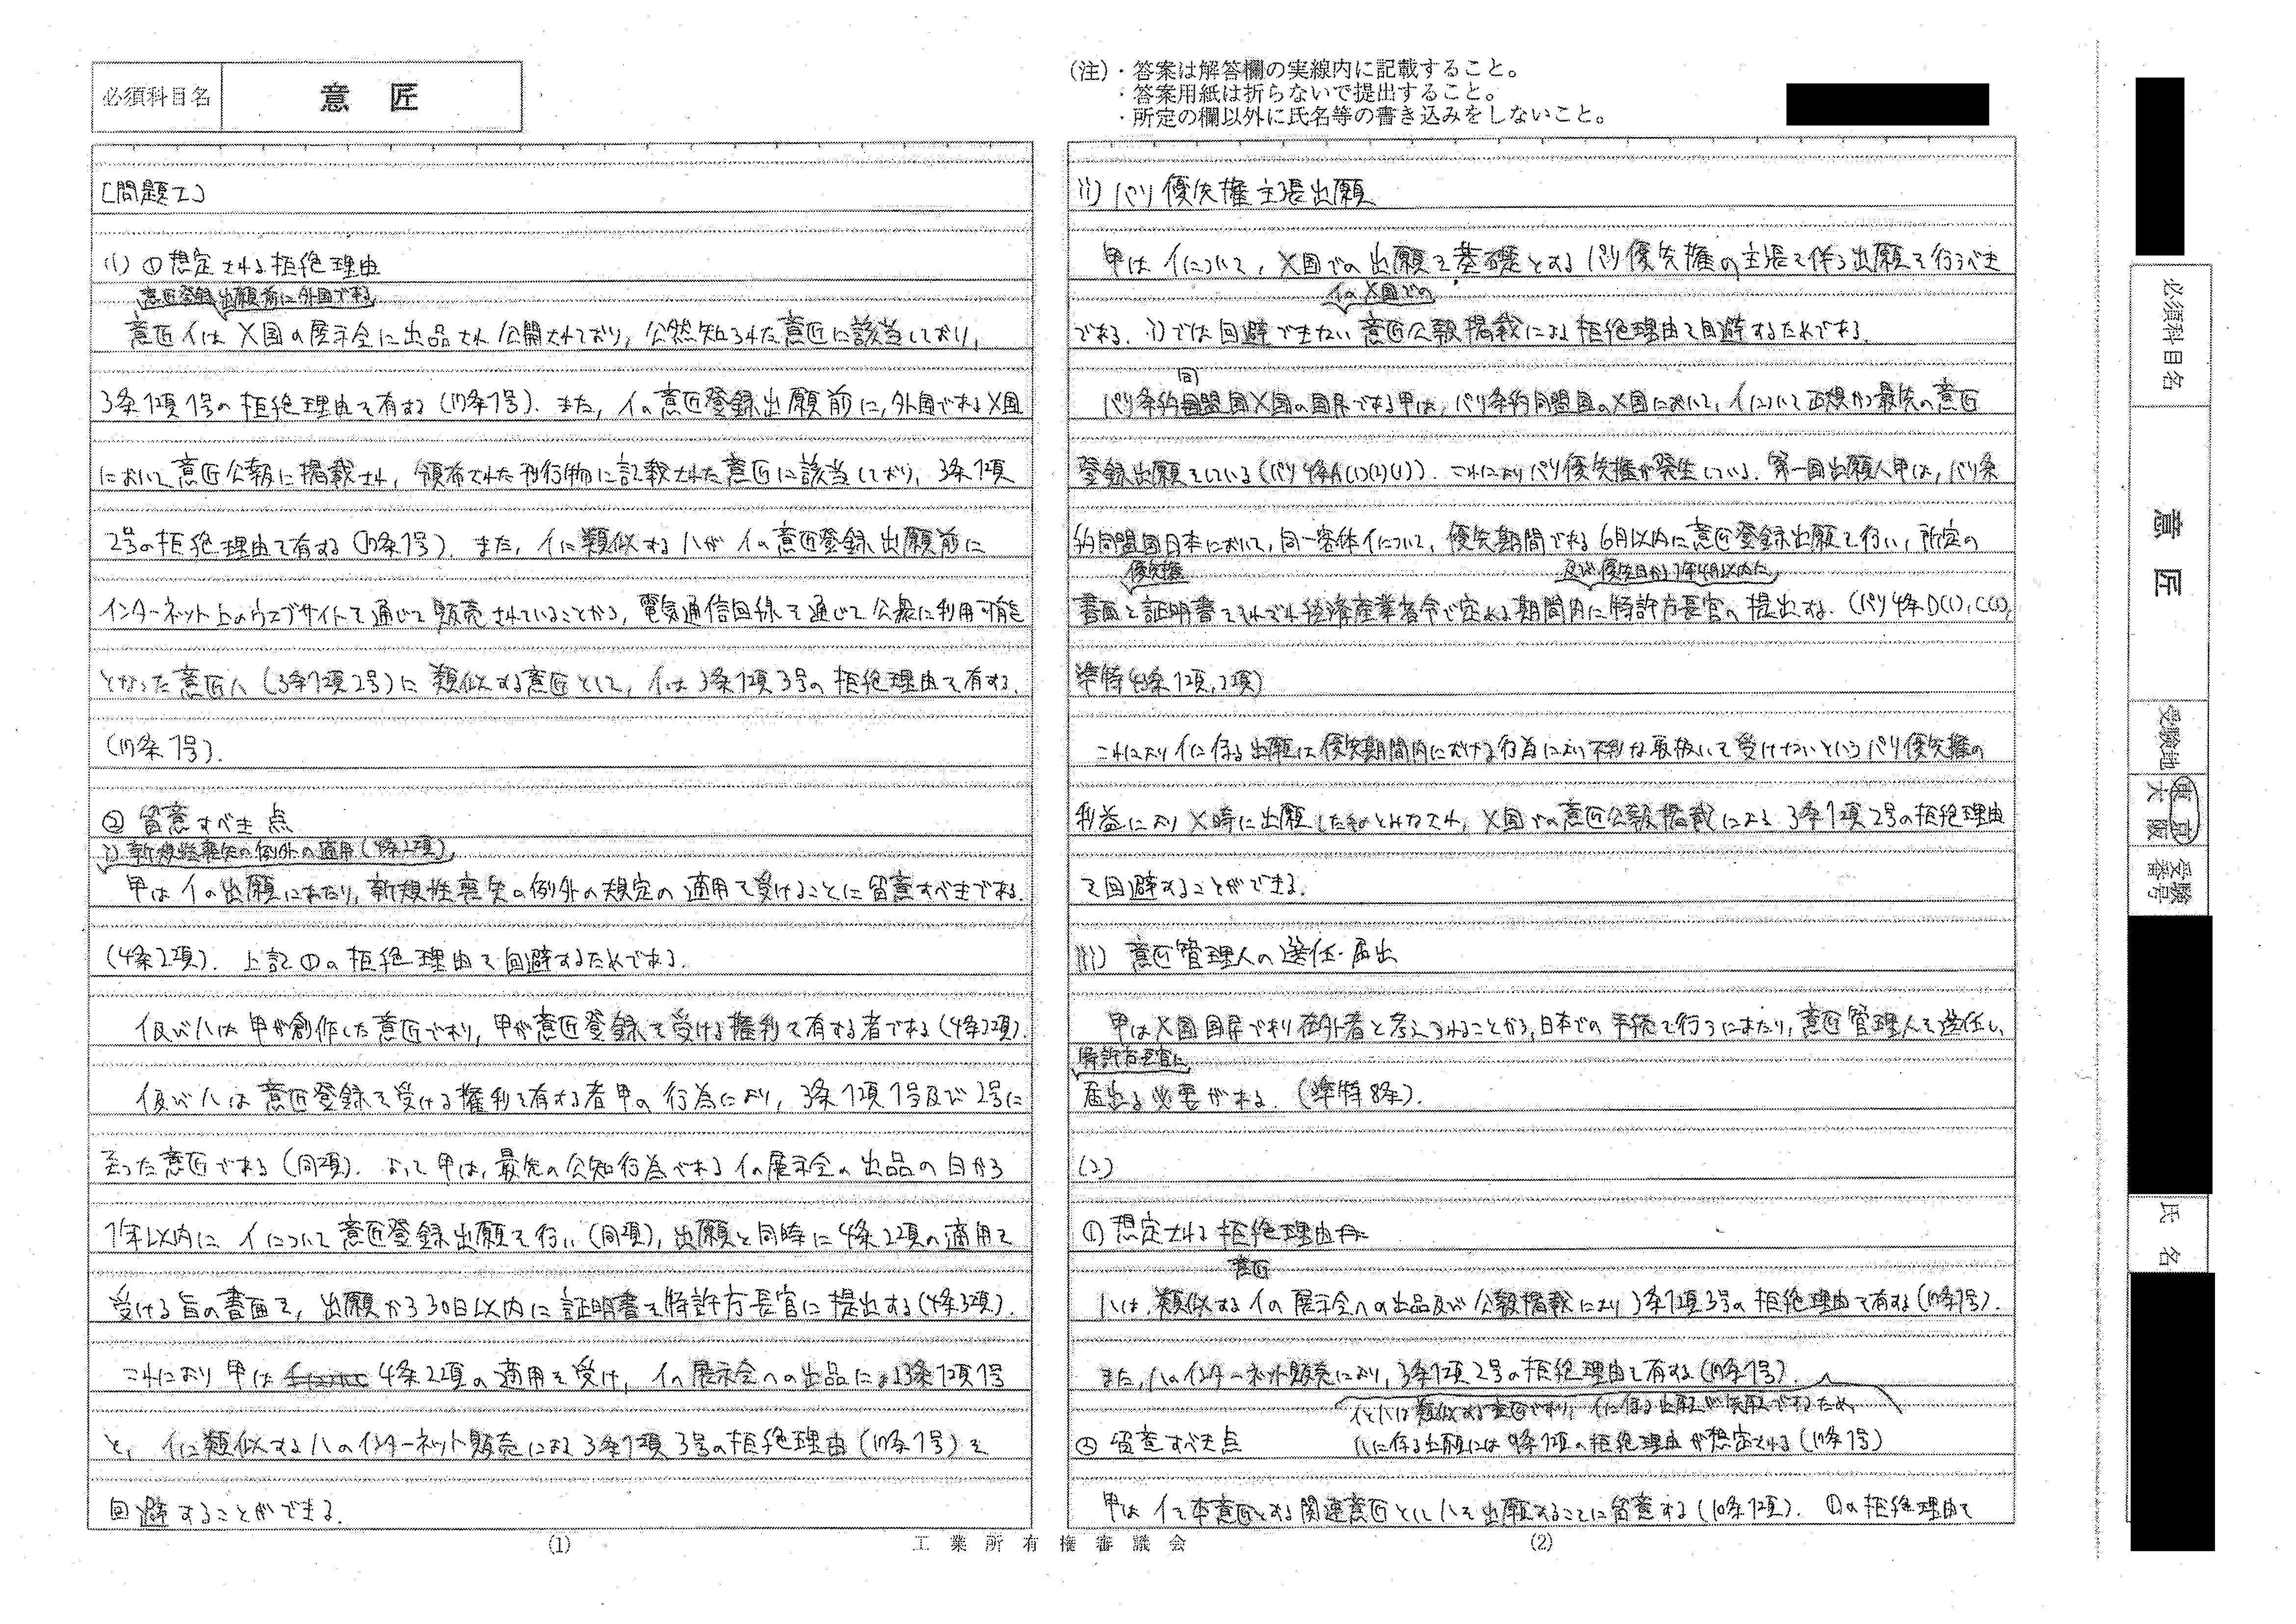 必須科目名
意 匠
(注)・答案は解答欄の実線内に記載すること。
・答案用紙は折らないで提出すること。
・所定の欄以外に氏名等の書き込みをしないこと。
[問題I]
(1) ①想定される拒絶理由
意匠登録出願前に外国である
意匠イは X国の展示会に出品され公開されており、公然知られた意匠に該当しており、
3条1項1号の拒絶理由を有する(17条1号). また、イの意匠登録出願前に、外国であるX国
において意匠公報に掲載され、頒布された刊行物に記載された意匠に該当しており、3条1項
2号の拒絶理由を有する(17条1号). また、イに類似するハがイの意匠登録出願前に
インターネット上のウェブサイトを通じて販売されていることから、電気通信回線を通じて公衆に利用可能と
なった意匠ハ(3条1項2号)に類似する意匠として、イは3条1項3号の拒絶理由を有する.
(17条1号).
② 留意すべき点
i) 新規性喪失の例外の適用(4条2項)
甲はイの出願にあたり、新規性喪失の例外の規定の適用を受けることに留意すべきである.
(4条2項). 上記①の拒絶理由を回避するためである.
イ及びハは甲が創作した意匠であり、甲が意匠登録を受ける権利を有する者である(4条2項).
イ及びハは意匠登録を受ける権利を有する者甲の行為により、3条1項1号及び2号に
至った意匠である(同項). よって甲は、最先の公知行為であるイの展示会の出品の日から
1年以内にイについて意匠登録出願を行い(同項)、出願と同時に4条2項の適用を
受ける旨の書面を、出願から30日以内に証明書を特許庁長官に提出する(4条3項).
これにより甲は 4条2項の適用を受け、イの展示会への出品による3条1項1号
と、イに類似するハのインターネット販売による3条1項3号の拒絶理由(17条1号)を
回避することができる.
(1)
ii) パリ優先権主張出願
甲はイについて、X国での出願を基礎とするパリ優先権の主張を伴う出願を行うべき
イのX国での
である. i)では回避できない意匠公報掲載による拒絶理由を回避するためである.
同
パリ条約同盟国X国の国民である甲は、パリ条約同盟国のX国において、イについて正規かつ最先の意匠
登録出願をしている(パリ4条A(1)(2)(1)). これによりパリ優先権が発生している. 第一国出願人甲は、パリ条
約同盟国日本において、同一客体イについて、優先期間である6月以内に意匠登録出願を行い、所定の
優先権
及び優先日から1年4月以内に
書面と証明書をそれぞれ経済産業省令で定める期間内に特許庁長官へ提出する.(パリ4条D(1),C(1),
準特43条1項,2項)
これによりイに係る出願は優先期間内における行為により不利な取扱いを受けないというパリ優先権の
利益によりX時に出願したものとみなされ、X国での意匠公報掲載による3条1項2号の拒絶理由
を回避することができる.
iii) 意匠管理人の選任・届出
甲はX国国民であり在外者と考えられることから、日本での手続を行うにあたり、意匠管理人を選任し、
特許庁長官に
届出る必要がある. (準特8条).
(2)
① 想定される拒絶理由
意匠
ハは、類似するイの展示会への出品及び公報掲載により3条1項3号の拒絶理由を有する(17条1号).
また、ハのインターネット販売により、3条1項2号の拒絶理由を有する(17条1号).
イとハは類似する意匠であり、イに係る出願が先願であるため
ハに係る出願には9条1項の拒絶理由が想定される(17条1号)
② 留意すべき点
甲はイを本意匠とする関連意匠としてハを出願することに留意する(10条1項). ①の拒絶理由を
(2)
工業所有権審議会
必須科目名
意 匠
受験地
東京
大阪
受験番号
氏 名